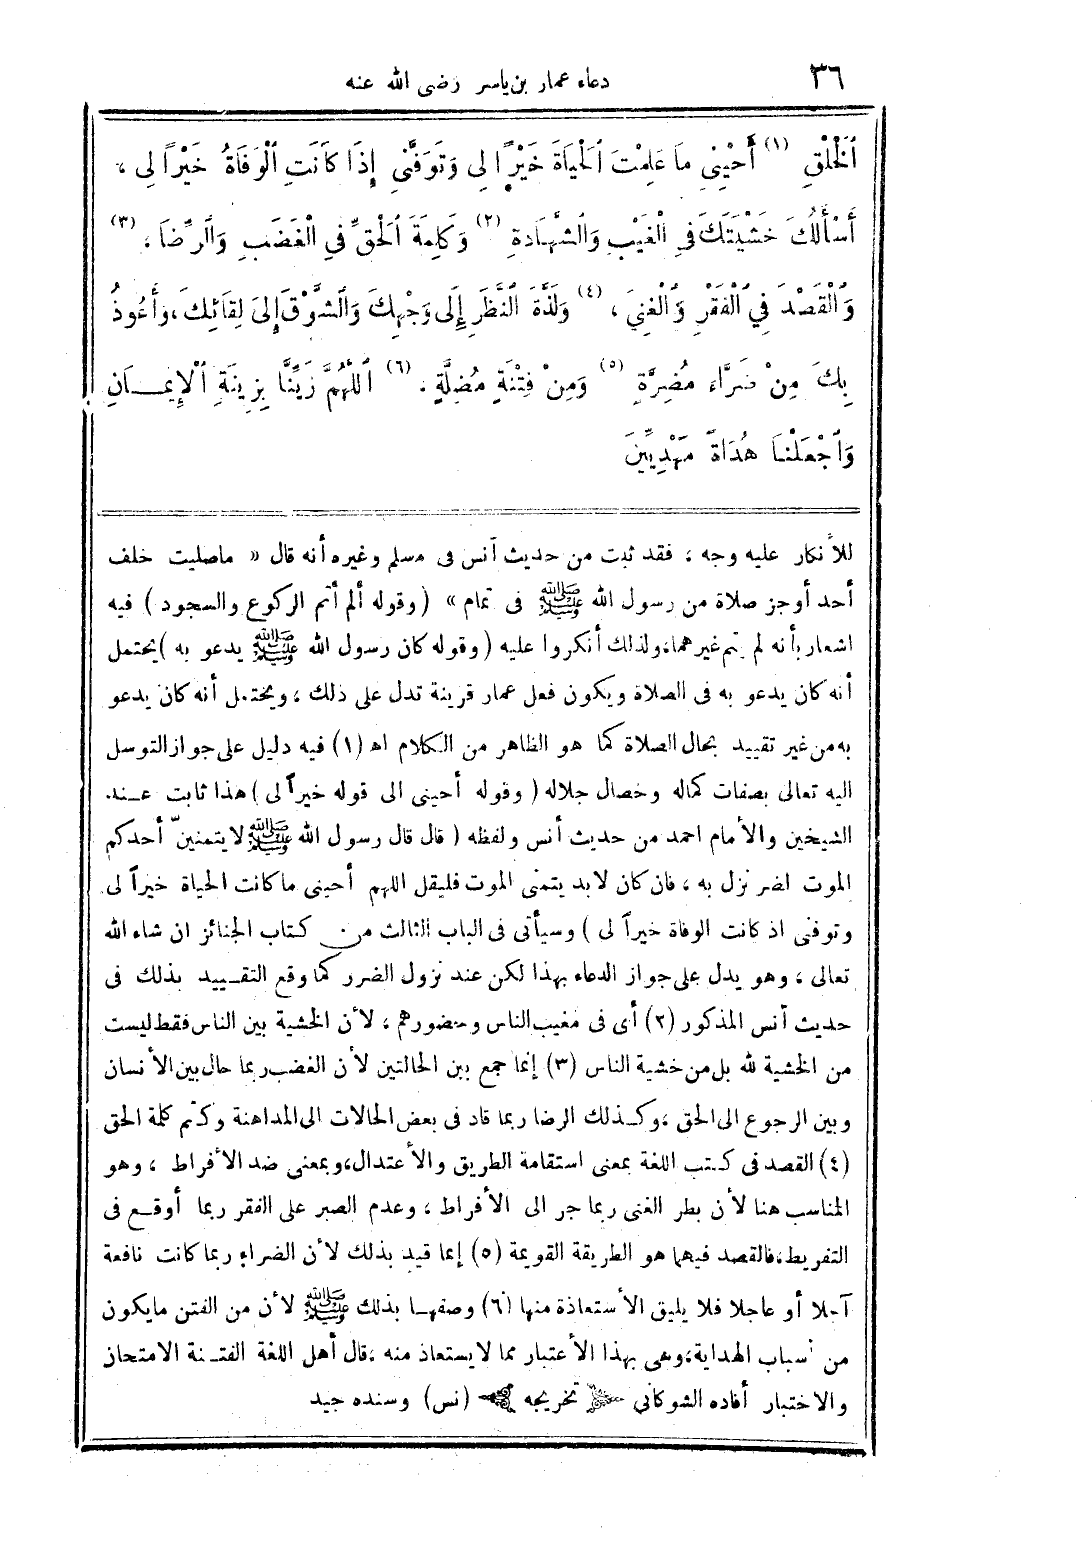 ٣٦ دعاء عمار بن ياسر رضى الله عنه
ٱلْخَلْقِ (١) أَحْيِنِى مَا عَلِمْتَ ٱلْحَيَاةَ خَيْرًا لِى وَتَوَفَّنِى إِذَا كَانَتِ ٱلْوَفَاةُ خَيْرًا لِى ،
أَسْأَلُكَ خَشْيَتَكَ فِى ٱلْغَيْبِ وَٱلشَّهَادَةِ (٢) وَكَلِمَةَ ٱلْحَقِّ فِي ٱلْغَضَبِ وَٱلرِّضَا ، (٣)
وَٱلْقَصْدَ فِي ٱلْفَقْرِ وَٱلْغِنَى ، (٤) وَلَذَّةَ ٱلنَّظَرِ إِلَى وَجْهِكَ وَٱلشَّوْقَ إِلىَ لِقَائِكَ ، وَأَعُوذُ
بِكَ مِنْ ضَرَّاءَ مُضِرَّةٍ (٥) وَمِنْ فِتْنَةٍ مُضِلَّةٍ . (٦) ٱللَّهُمَّ زَيِّنَّا بِزِينَةِ ٱلْإِيمَـانِ
وَٱجْعَلْنَا هُدَاةً مَهْدِيِّينَ
للأنكار عليه وجه ، فقد ثبت من حديث أنس فى مسلم وغيره أنه قال « ماصليت خلف
أحد أوجز صلاة من رسول الله ﷺ فى تمام » ( وقوله ألم أتم الركوع والسجود ) فيه
اشعار بأنه لم يتم غيرهما، ولذلك أنكروا عليه ( وقوله كان رسول الله ﷺ يدعو به ) يحتمل
أنه كان يدعو به فى الصلاة ويكون فعل عمار قرينة تدل على ذلك ، ويحتمل أنه كان يدعو
به من غير تقييد بحال الصلاة كما هو الظاهر من الكلام اه (١) فيه دليل على جواز التوسل
اليه تعالى بصفات كماله وخصال جلاله ( وقوله أحينى الى قوله خيراً لى ) هذا ثابت عـند
الشيخين والأمام احمد من حديث أنس ولفظه ( قال قال رسول الله ﷺ لايتمنينّ أحدكم
الموت لضر نزل به ، فان كان لابد يتمنى الموت فليقل اللهم أحينى ماكانت الحياة خيراً لى
وتوفنى اذ كانت الوفاة خيراً لى ) وسيأتى فى الباب الثالث من كتاب الجنائز ان شاء الله
تعالى ، وهو يدل على جواز الدعاء بهذا لكن عند نزول الضرر كما وقع التقـييد بذلك فى
حديث أنس المذكور (٢) أى فى مغيب الناس وحضورهم ، لأن الخشية بين الناس فقط ليست
من الخشية لله بل من خشية الناس (٣) إنما جمع بين الحالتين لأن الغضب ربما حال بين الأنسان
وبين الرجوع الى الحق ، وكـذلك الرضا ربما قاد فى بعض الحالات الى المداهنة وكتم كلمة الحق
(٤) القصد فى كـتب اللغة بمعنى استقامة الطريق والأعتدال، وبمعنى ضد الأفراط ، وهو
المناسب هنا لأن بطر الغنى ربما جر الى الأفراط ، وعدم الصبر على الفقر ربما أوقـع فى
التفريط، فالقصد فيهما هو الطريقة القويمة (٥) إنما قيد بذلك لأن الضراء ربما كانت نافعة
آجلا أو عاجلا فلا يليق الأستعاذة منها (٦) وصفهـا بذلك ﷺ لأن من الفتن مايكون
من أسباب الهداية، وهى بهذا الأعتبار مما لا يستعاذ منه ، قال أهل اللغة الفتـنة الامتحان
والاختبار أفاده الشوكانى تخريجه (نس) وسنده جيد